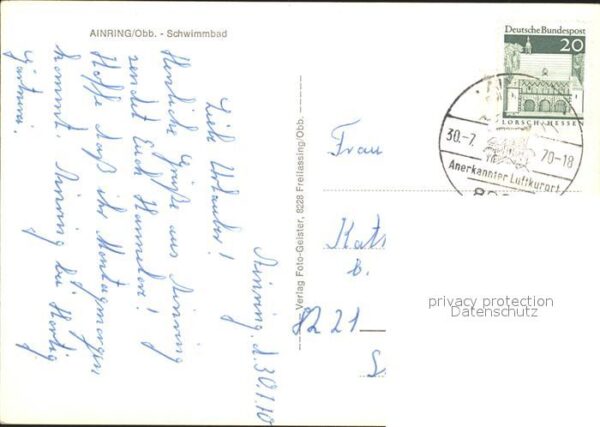 AINRING/Obb. - Schwimmbad
Ainring, d. 30.7.70
Liebe Urlauber!
Herzliche Grüße aus Ainring
sendet Euch Hannelore!
Hoffe daß ihr Montagmorgen
kommt. Ainring bei
Verlag Foto-Geister, 8228 Freilassing/Obb.
Deutsche Bundespost
20
LORSCH/HESSEN
30.-7. 70-18
Anerkannter Luftkurort
Frau
b.
8221
privacy protection
Datenschutz